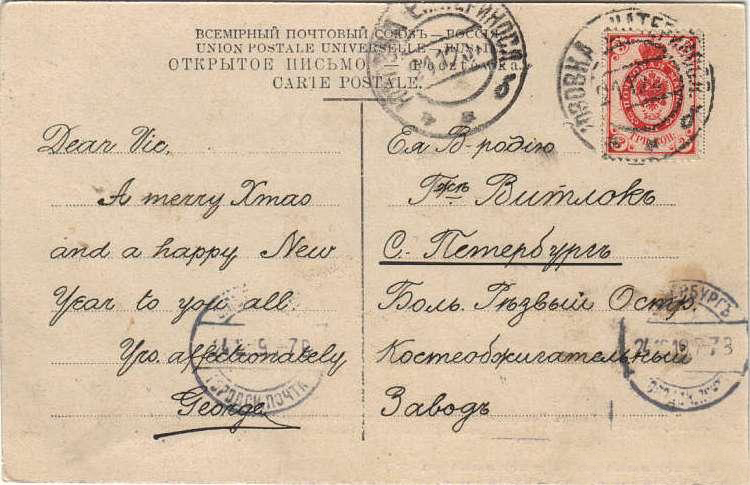 ВСЕМІРНЫЙ ПОЧТОВЫЙ СОЮЗЪ. РОССІЯ
UNION POSTALE UNIVERSELLE. RUSSIE
ОТКРЫТОЕ ПИСЬМО.
CARTE POSTALE.
Dear Vic,
A merry Xmas
and a happy New
Year to you all.
Yrs. affectionately
George
Ея В-родію
Витлокъ
С. Петербургъ
Боль. Рѣзвый Остр.
Костеобжигательный
Заводъ